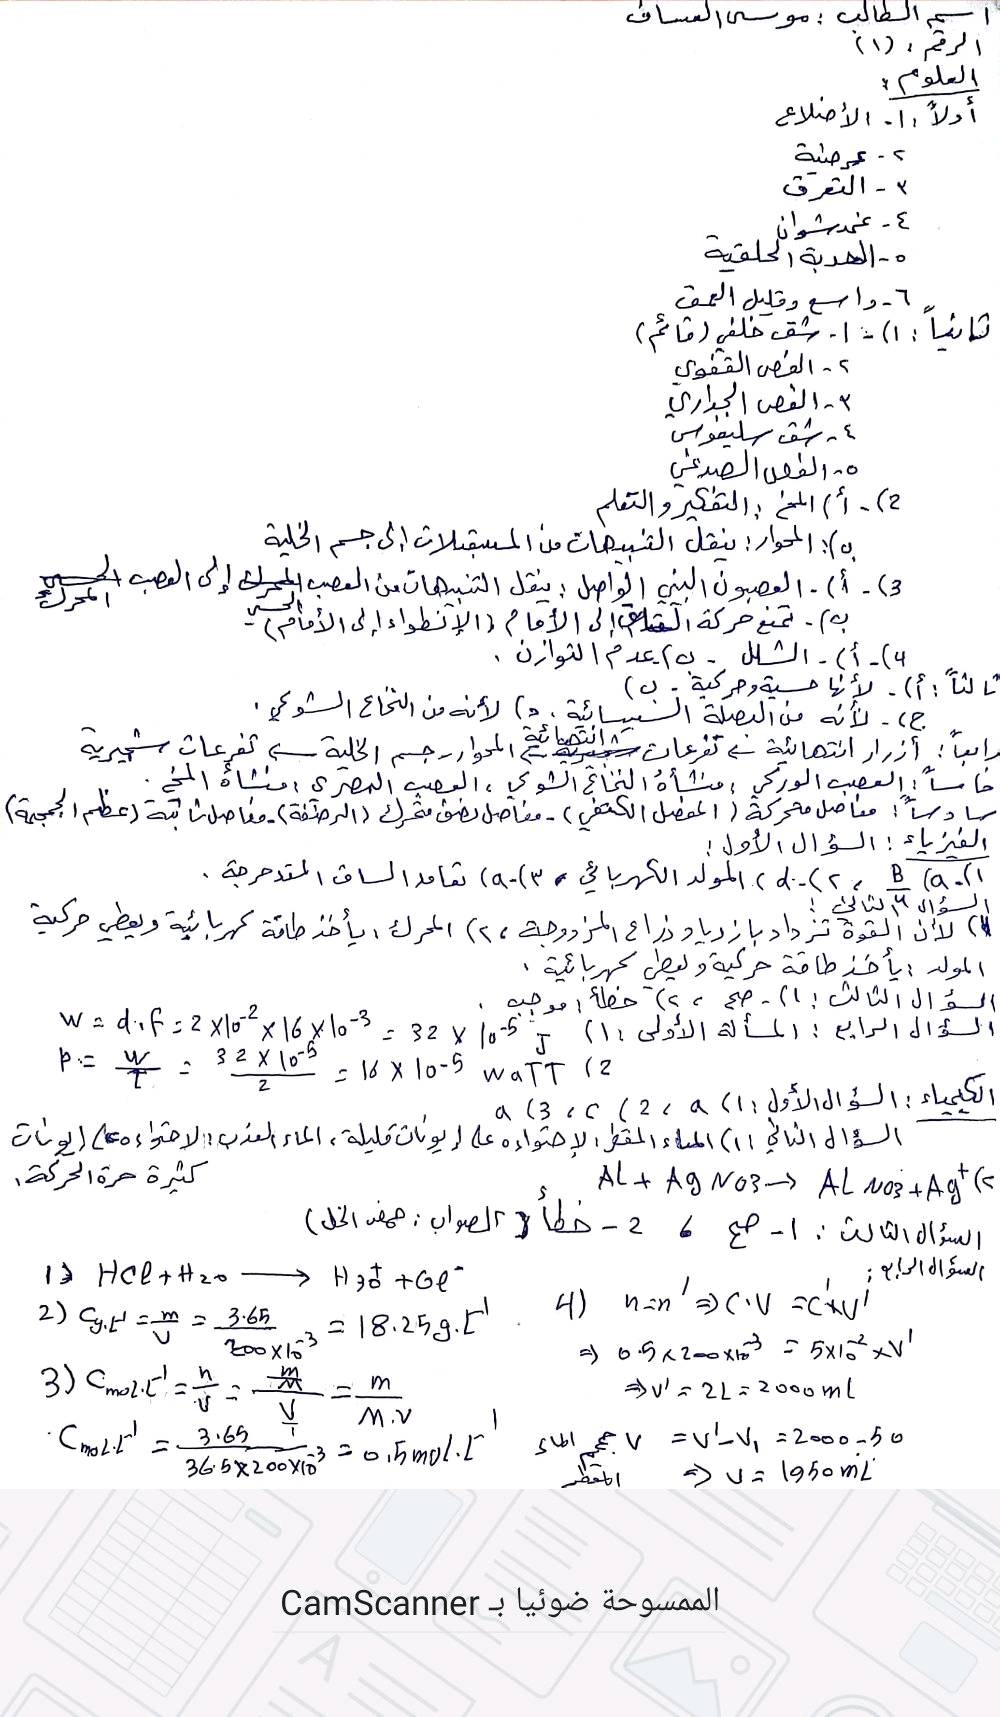 اسم الطالب: موسى العساف
الرقم: (١)
العلوم:
أولاً: ١- الأضلاع
٢- عرضية
٣- التعرق
٤- غمدشوان
٥- الهدبة الحلقية
٦- واسع وقليل العمق
ثانياً: ١) - ١- شق خلفي (قائم)
٢- الفص القفوي
٣- الفص الجداري
٤- شق سيلفيوس
٥- الفص الصدغي
2)- أ) المخ: التفكير والتعلم
ب): المحوار: ينقل التنبيهات من المستقبلات إلى جسم الخلية
3)- أ)- العصبون البيني الواصل: ينقل التنبيهات من العصب الحسي إلى العصب المحرك
ب)- تمنع حركة الساق إلى الأمام (الإنطواء إلى الأمام)
4)- أ)- الشلل - ب) عدم التوازن.
ثالثاً: أ)- لأنها حسية وحركية - ب)
ج)- لأنه من البصلة السيسائية. د) لأنه من النخاع الشوكي.
رابعاً: أزرار انتهائية ← تفرعات انتهائية ← المحوار - جسم الخلية ← تفرعات شجيرية
خامساً: العصب الوركي: منشأه النخاع الشوكي، العصب البصري: منشأه المخ.
سادساً: مفاصل متحركة (المفصل الكتفي) - مفاصل نصف متحركة (الرضفة) - مفاصل ثابتة (عظم الجمجمة)
الفيزياء: السؤال الأول:
١)- a) B/، ٢)- d، المولد الكهربائي، ٣)- a) تقامد الساق المتدحرجة.
السؤال الثاني:
١) لأن القوة تزداد بازدياد ذراع المزدوجة، ٢) المحرك: يأخذ طاقة كهربائية ويعطي حركية
المولد: يأخذ طاقة حركية ويعطي كهربائية.
السؤال الثالث: ١)- صح، ٢) خطأ: موجبه.
السؤال الرابع: المسألة الأولى: ١) W = d.F = 2×10-2 × 16×10-3 = 32 × 10-5 J
2) P = W/t = 32×10-5/2 = 16×10-5 waTT
الكيمياء: السؤال الأول: ١) a، 2) c، 3) a
السؤال الثاني: ١) الماء المقطر: لإحتواءه على إيونات قليلة، الماء العذب: لاحتواءه على إيونات
كثيرة حرة الحركة.
٢) AL + AgNO3 → ALNO3 + Ag+
السؤال الثالث: 1- صح 6 2- خطأ (الصواب: حمض الخل)
السؤال الرابع:
1) HCl + H2O ⟶ H3O+ + Cl-
2) Cg.L-1 = m/V = 3.65/200×10-3 = 18.25g.L-1
3) Cmol.L-1 = n/V = m/M/V/1 = m/M.V
Cmol.L-1 = 3.65/36.5×200×10-3 = 0.5mol.L-1
4) n=n' ⇒ C.V = C'×V'
⇒ 0.5×200×10-3 = 5×10-2×V'
⇒ V' = 2L = 2000mL
حجم الماء المقطر V = V'-V1 = 2000-50
⇒ V = 1950mL
الممسوحة ضوئيا بـ CamScanner